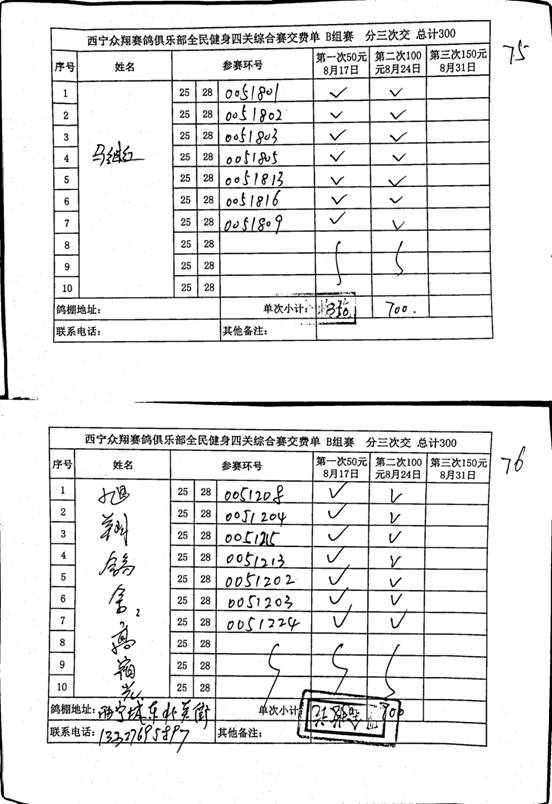 西宁众翔赛鸽俱乐部全民健身四关综合赛交费单 B组赛 分三次交 总计300
75
序号 姓名 参赛环号 第一次50元 8月17日 第二次100元8月24日 第三次150元 8月31日
1 25 28 0051801 ✓ ✓
2 25 28 0051802 ✓ ✓
3 25 28 0051803 ✓ ✓
4 马继红 25 28 0051805 ✓ ✓
5 25 28 0051813 ✓ ✓
6 25 28 0051816 ✓ ✓
7 25 28 0051809 ✓ ✓
8 25 28
9 25 28
10 25 28
鸽棚地址: 单次小计: 350. 700.
联系电话: 其他备注:
西宁众翔赛鸽俱乐部全民健身四关综合赛交费单 B组赛 分三次交 总计300
76
序号 姓名 参赛环号 第一次50元 8月17日 第二次100元8月24日 第三次150元 8月31日
1 旭 25 28 0051208 ✓ ✓
2 翔 25 28 0051204 ✓ ✓
3 鸽 25 28 0051215 ✓ ✓
4 舍 25 28 0051213 ✓ ✓
5 25 28 0051202 ✓ ✓
6 高 25 28 0051203 ✓ ✓
7 25 28 0051224 ✓ ✓
8 25 28
9 25 28
10 25 28
鸽棚地址: 西宁城东 街 单次小计 700
联系电话: 13327695897 其他备注: